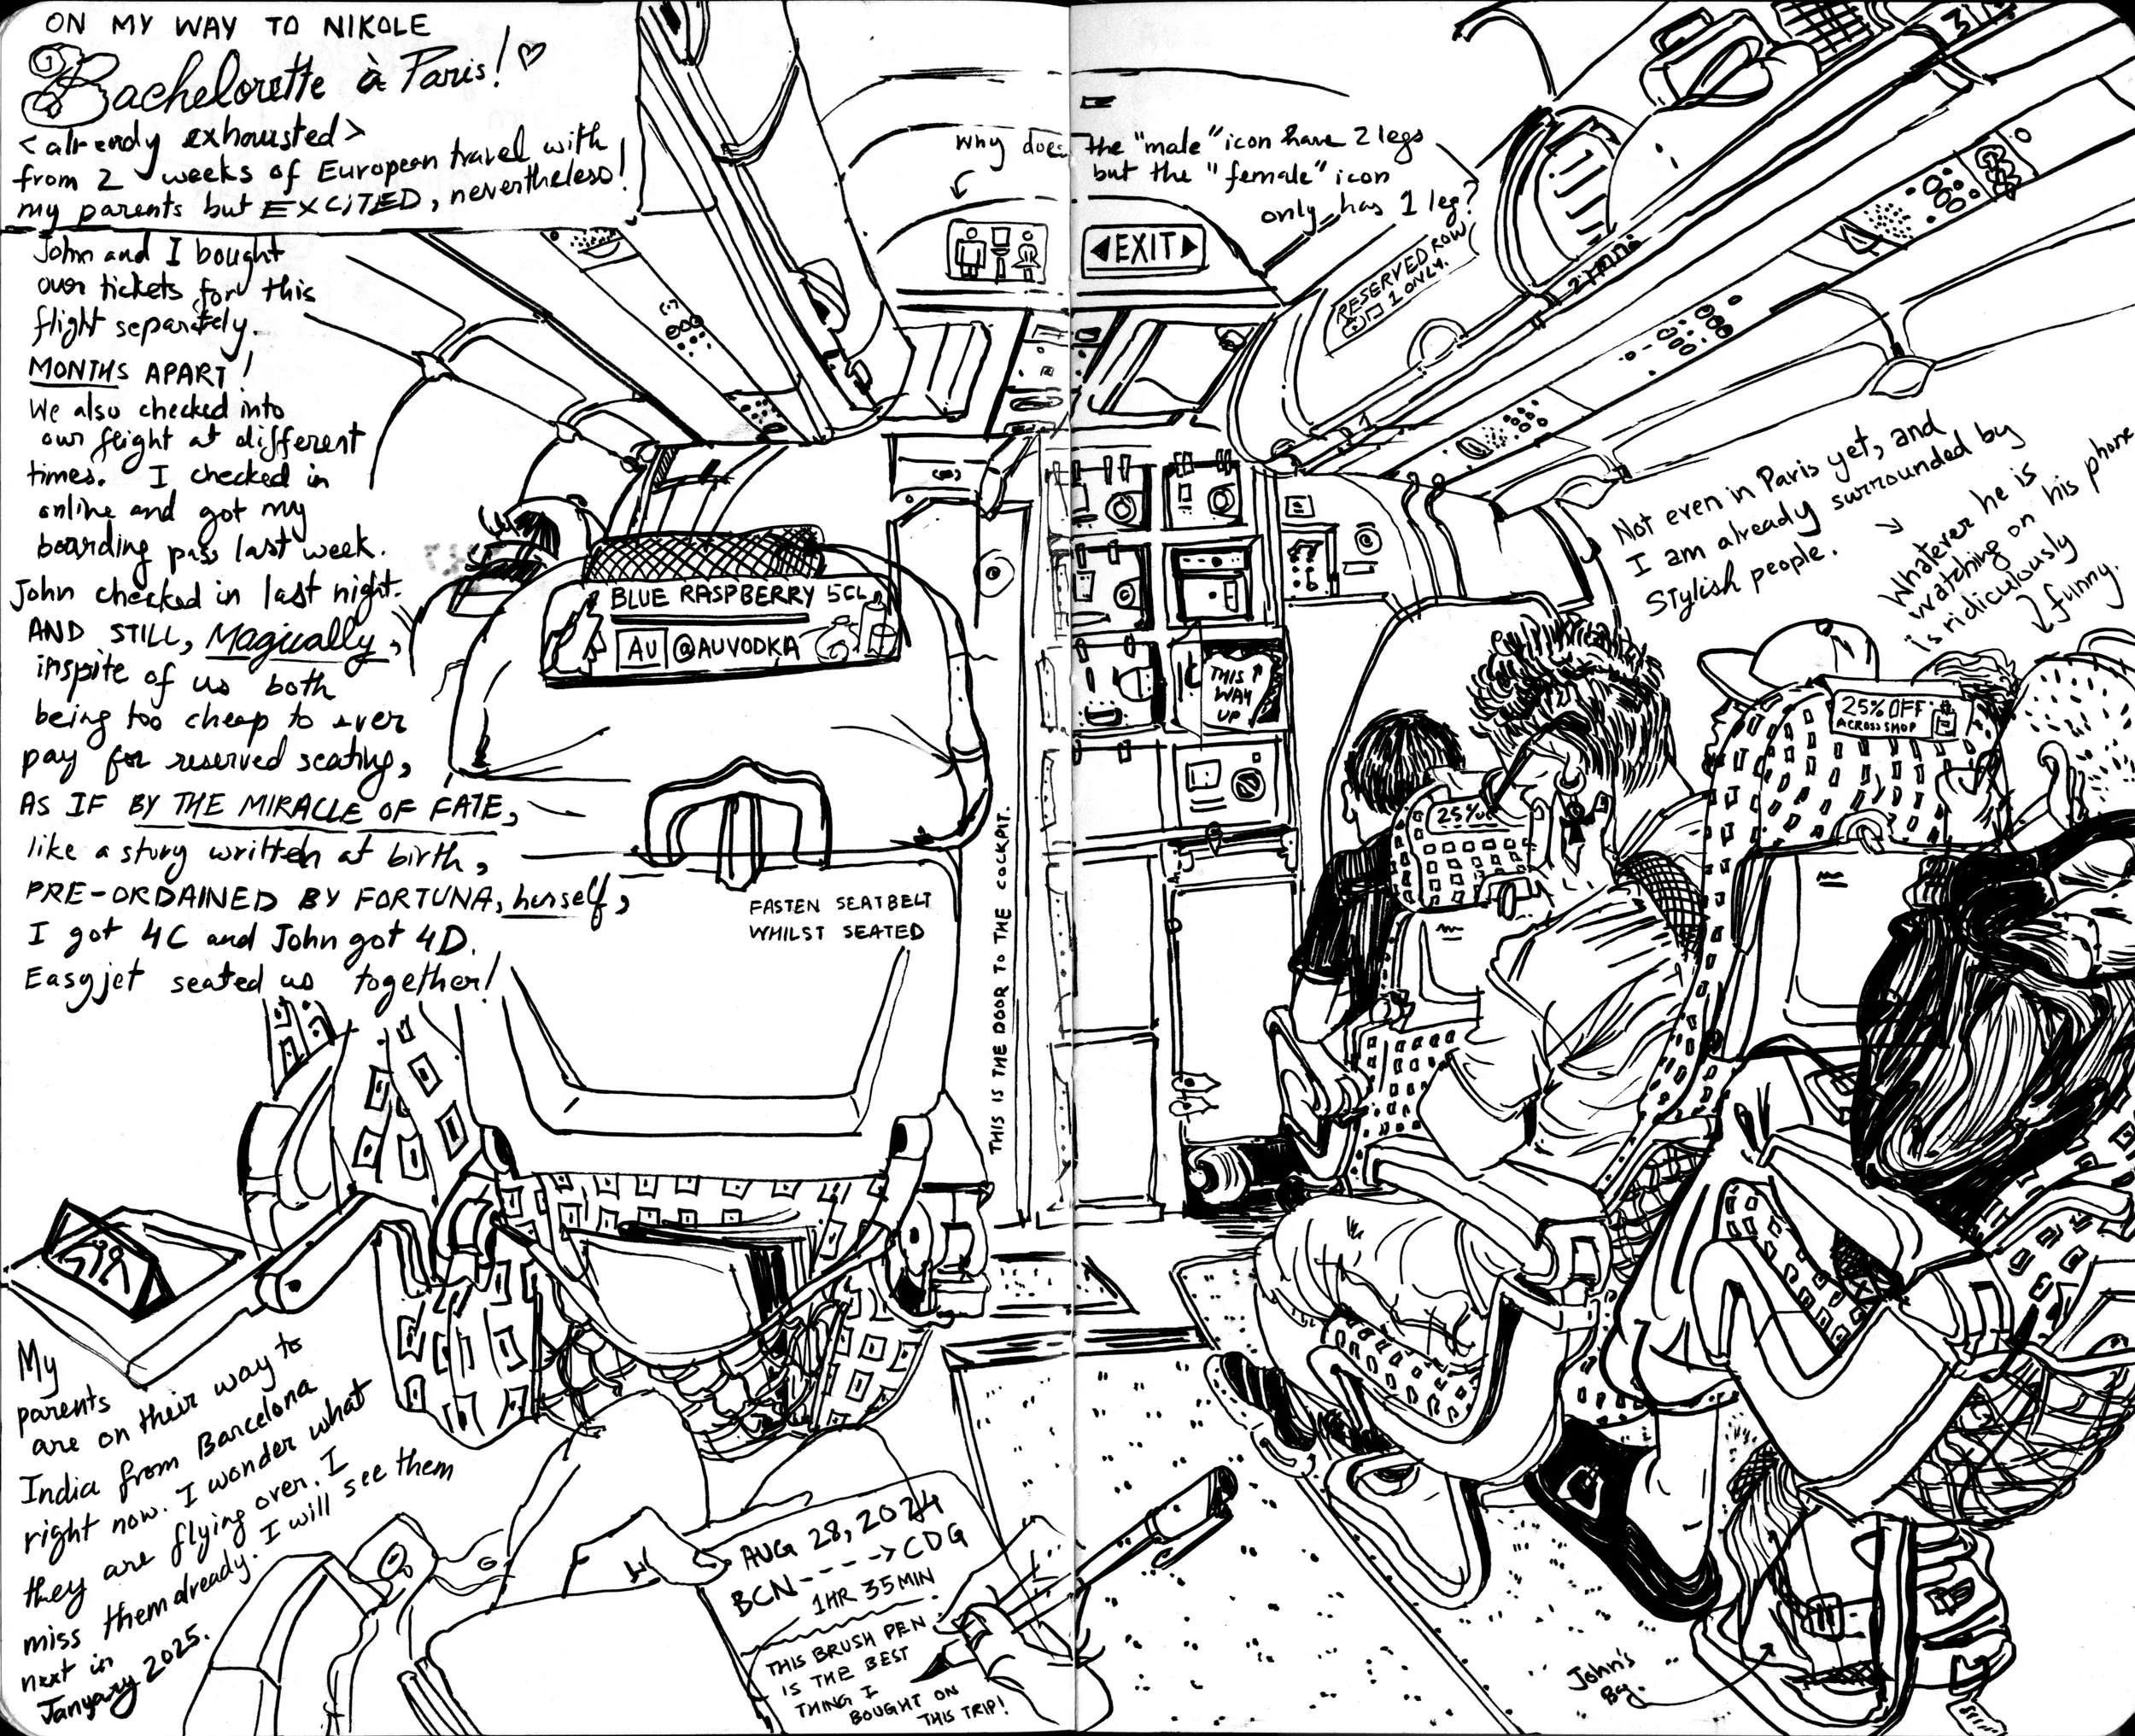 ON MY WAY TO NIKOLE
Bachelorette à Paris!
<already exhausted>
from 2 weeks of European travel with
my parents but EXCITED, nevertheless!
John and I bought
our tickets for this
flight separately.
MONTHS APART!
We also checked into
our flight at different
times. I checked in
online and got my
boarding pass last week.
John checked in last night.
AND STILL, Magically,
inspite of us both
being too cheap to ever
pay for reserved seating,
AS IF BY THE MIRACLE OF FATE,
like a story written at birth,
PRE-ORDAINED BY FORTUNA, herself,
I got 4C and John got 4D.
Easyjet seated us together!
My
parents
are on their way to
India from Barcelona
right now. I wonder what
they are flying over. I
miss them already. I will see them
next in
January 2025.
Why does the "male" icon have 2 legs
but the "female" icon
only has 1 leg?
EXIT
RESERVED ROW
1 ONLY.
1
2
3
BLUE RASPBERRY 5CL
AU @AUVODKA
FASTEN SEATBELT
WHILST SEATED
THIS IS THE DOOR TO THE COCKPIT.
THIS
WAY
UP
Not even in Paris yet, and
I am already surrounded by
stylish people.
Whatever he is
watching on his phone
is ridiculously
funny.
25% OFF
ACROSS SHOP
25%
AUG 28, 2024
BCN----> CDG
1HR 35MIN
THIS BRUSH PEN
IS THE BEST
THING I
BOUGHT ON
THIS TRIP!
John's
Bag.